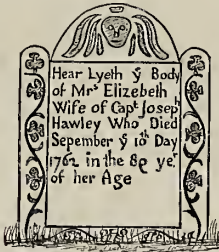 Hear Lyeth ẏ Body
of Mrs Elizebeth
Wife of Capt Joseph
Hawley Who Died
Sepember ẏ 10th Day
1762 in the 89 yer
of her Age